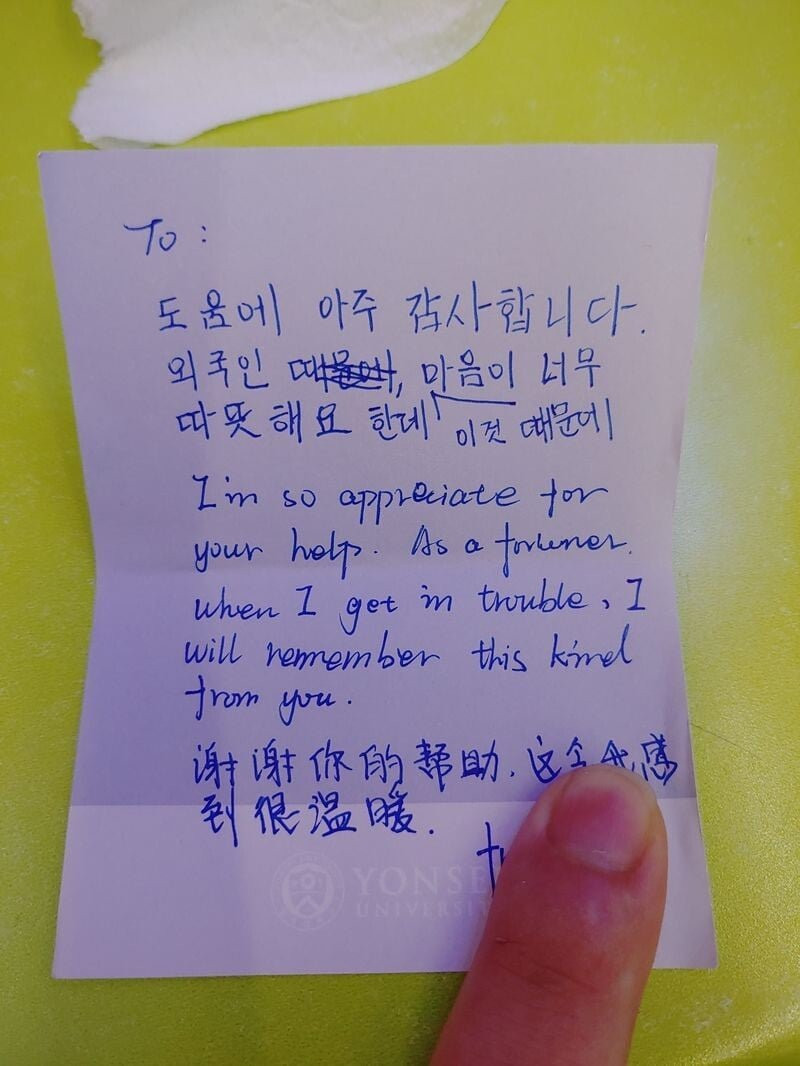 To :
도움에 아주 감사합니다.
외국인 , 마음이 너무
따뜻해요 한데 이것 때문에
I'm so appreciate for
your help. As a foriener.
when I get in trouble, I
will remember this kind
from you.
谢谢你的帮助. 这令我感
到很温暖.
YONSE
UNIVERSI